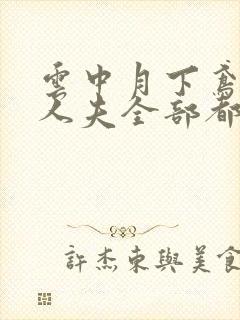 雲中月下
人夫全部都
許杰東與美食